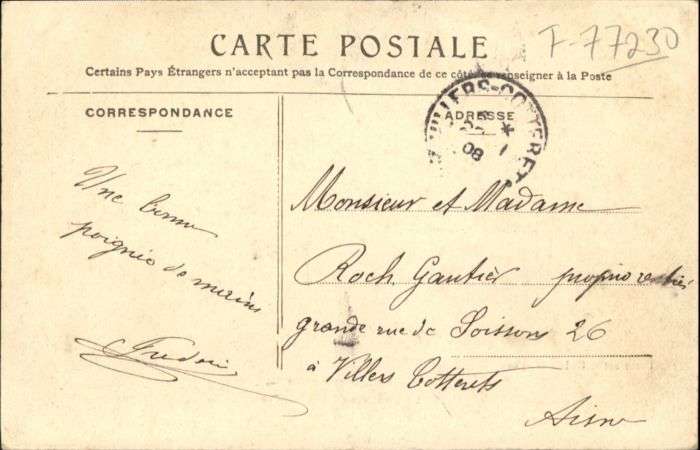 CARTE POSTALE
F-77230
Certains Pays Étrangers n'acceptant pas la Correspondance de ce côté, se renseigner à la Poste
CORRESPONDANCE
ADRESSE
VILLERS-COTTERETS
08
Une bonne
poignée de mains
Monsieur et Madame
Roch Gautier propriétaires
grande rue de Soissons 26
à Villers Cotterets
Aisne